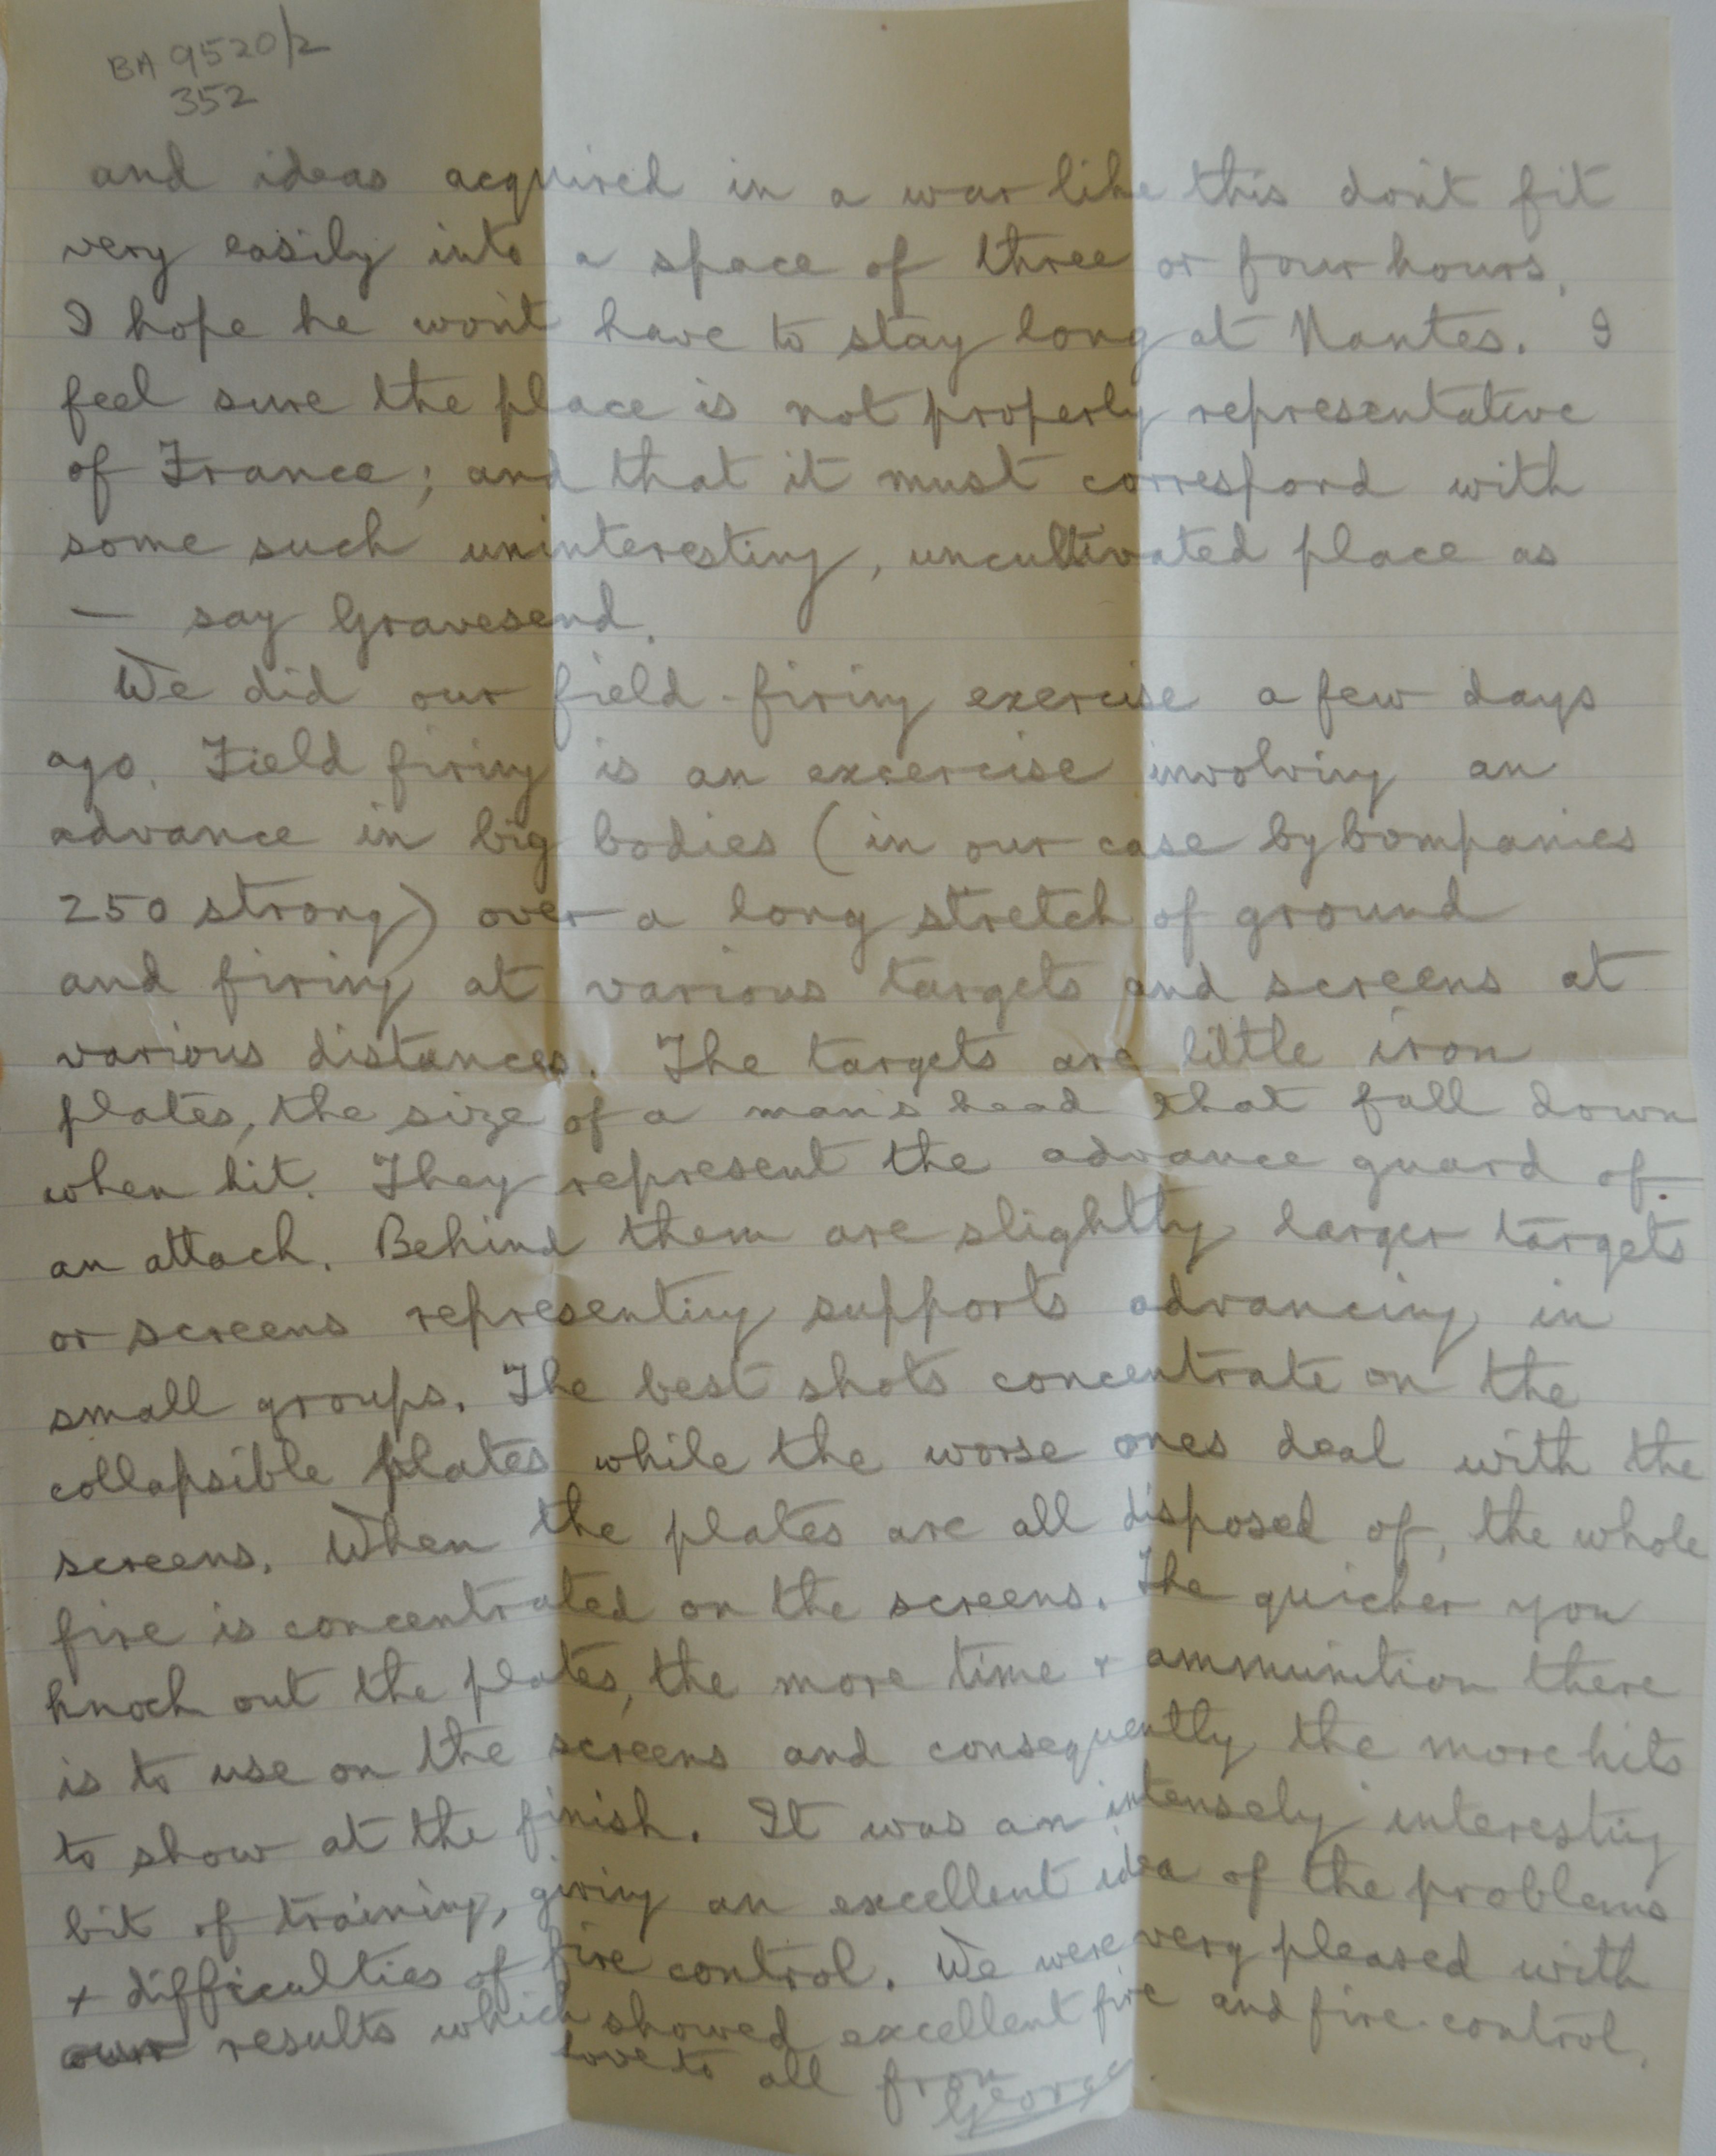 BA 9520/2
352
and ideas acquired in a war like this don't fit
very easily into a space of three or four hours.
I hope he won't have to stay long at Nantes. I
feel sure the place is not properly representative
of France; and that it must correspond with
some such uninteresting, uncultivated place as
— say Gravesend.
We did our field-firing exercise a few days
ago. Field firing is an excercise involving an
advance in big bodies (in our case by Companies
250 strong) over a long stretch of ground
and firing at various targets and screens at
various distances. The targets are little iron
plates, the size of a man's head that fall down
when hit. They represent the advance guard of
an attack. Behind them are slightly larger targets
or screens representing supports advancing in
small groups. The best shots concentrate on the
collapsible plates while the worse ones deal with the
screens. When the plates are all disposed of, the whole
fire is concentrated on the screens. The quicker you
knock out the plates, the more time + ammunition there
is to use on the screens and consequently the more hits
to show at the finish. It was an intensely interesting
bit of training, giving an excellent idea of the problems
+ difficulties of fire control. We were very pleased with
our results which showed excellent fire and fire-control.
Love to all from
George